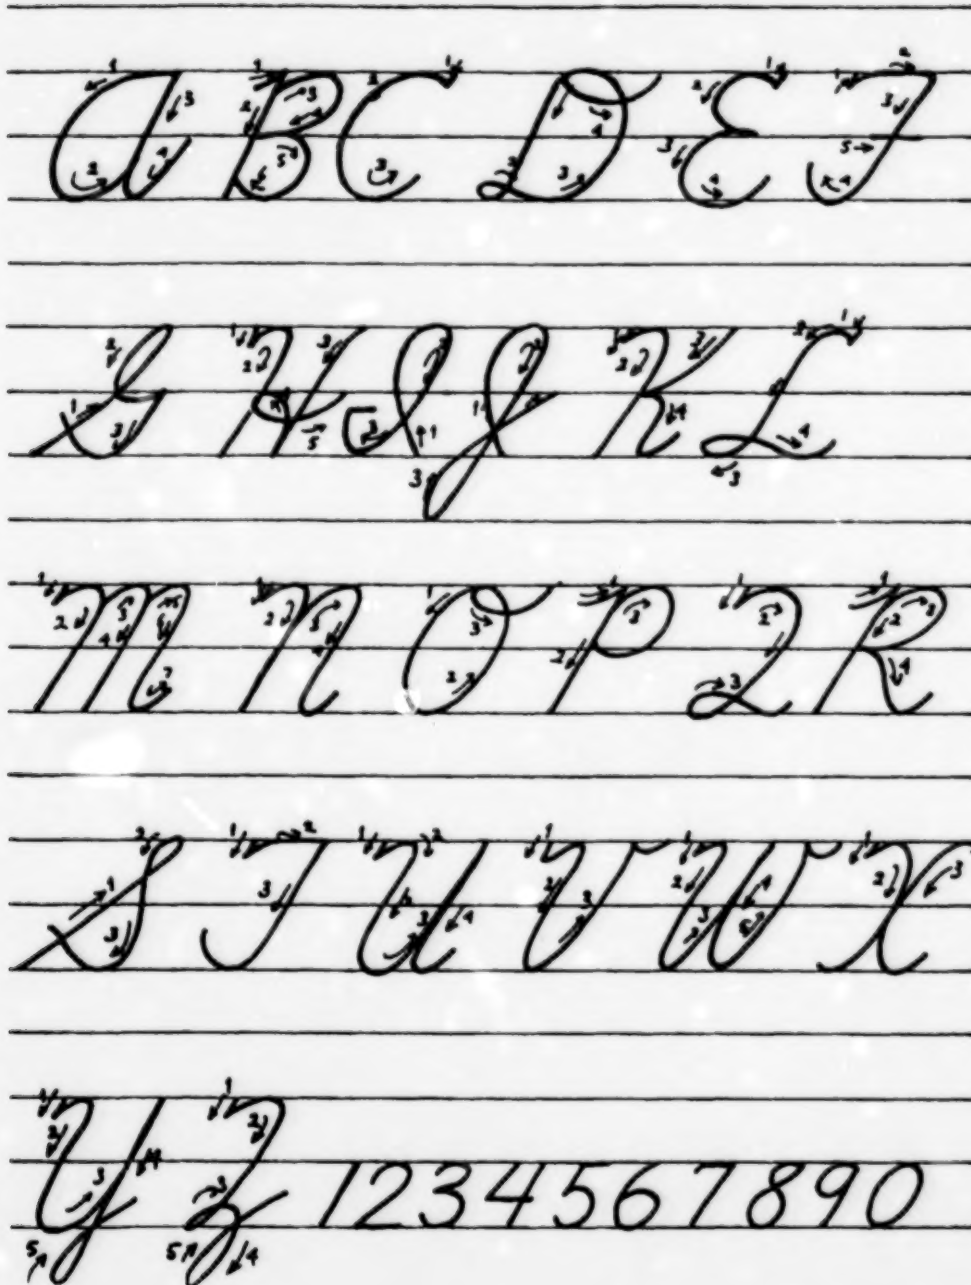 A B C D E F
G H I J K L
M N O P Q R
S T U V W X
Y Z 1 2 3 4 5 6 7 8 9 0